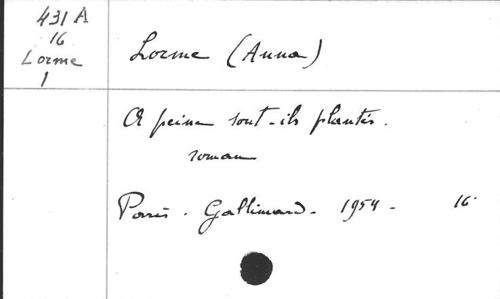 431 A
16
Lorme
1
Lorme (Anna)
A peine sont-ils plantés.
roman
Paris. Gallimard. 1954 - 16°